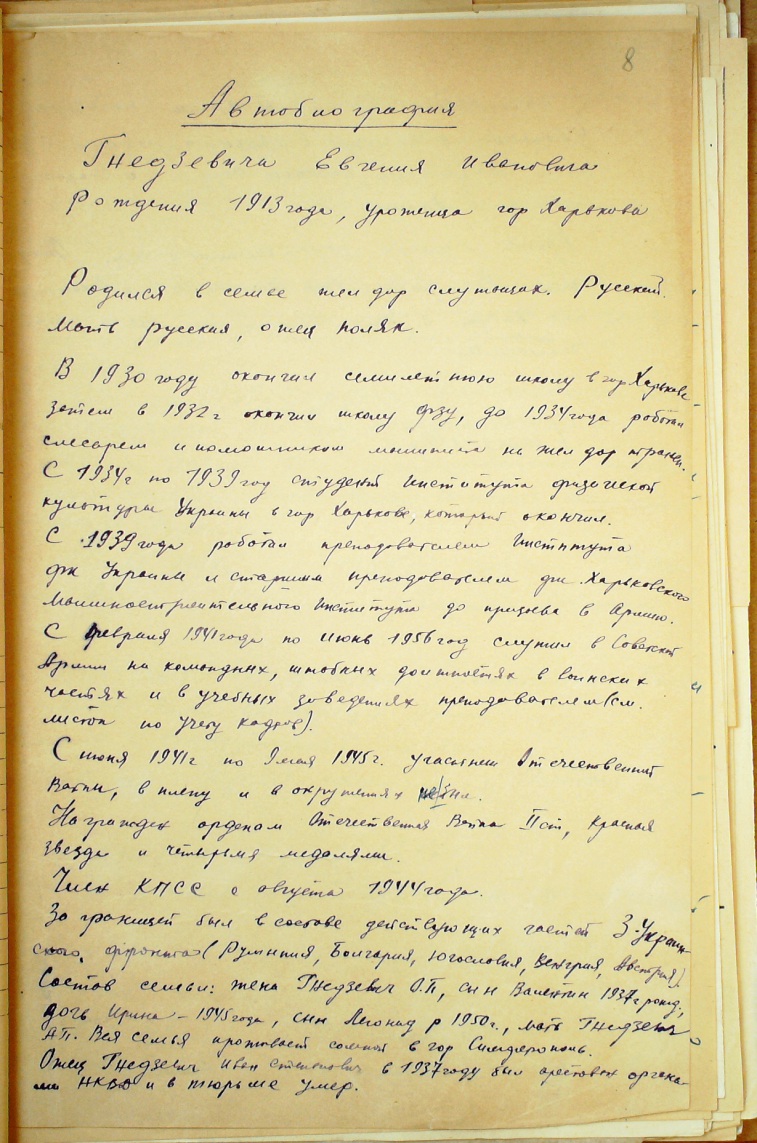 8
Автобиография
Гнедзевича Евгения Ивановича
рождения 1913 года, уроженца гор Харькова
Родился в семье жел дор служащих. Русский.
Мать русская, отец поляк.
В 1930 году окончил семилетнюю школу в гор Харькове
затем в 1932 г окончил школу фзу, до 1934 года работал
слесарем и помошником машиниста на жел дор
С 1934 г по 1939 год студент Института физической
культуры Украины в гор Харькове, который окончил.
С 1939 года работал преподователем Института
фк Украины и старшим преподователем фк Харьковского
Машиностроительного Института до призыва в Армию.
С февраля 1941 года по июнь 1956 год служил в Советской
Армии на командных, штабных должностях в воинских
частях и в учебных заведениях преподователем (см.
листок по учету кадров).
С июня 1941 г по 9 мая 1945 г. участник Отечественной
Войны, в плену и в окружениях не был.
Награжден орденом Отечественная Война II ст, Красная
звезда и четырьмя медалями.
Член КПСС с августа 1944 года.
За границей был в составе действующих частей 3-Украин-
ского фронта (Румыния, Болгария, Югославия, Венгрия, Австрия).
Состав семьи: жена Гнедзевич О.П, сын Валентин 1937 г рожд,
дочь Ирина - 1945 года, сын Леонид р 1950 г., мать Гнедзевич
А.П. Вся семья проживает со мной в гор Симферополь.
Отец Гнедзевич Иван в 1937 году был арестован органа-
ми НКВД и в тюрьме умер.